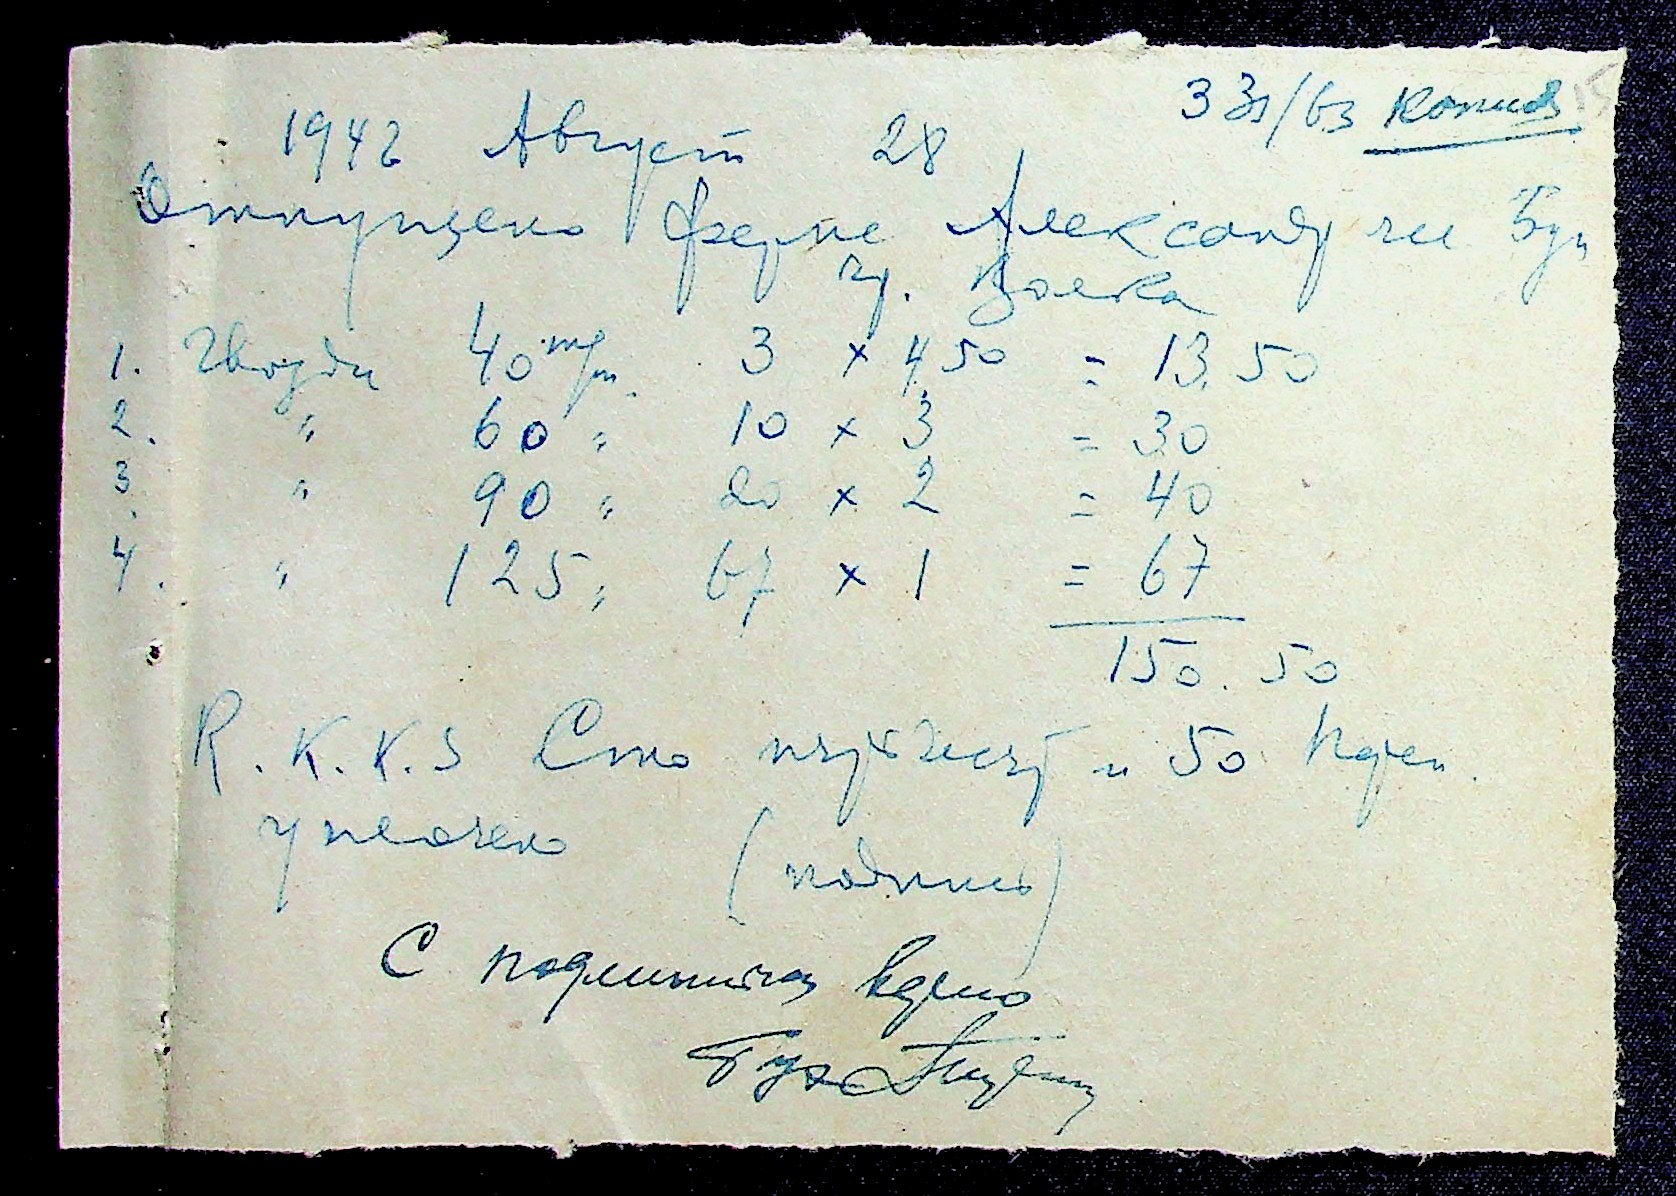 Копия 15
1942 Август 28
Отпущено ферме Александр
гр. Волка
1. Гвозди 40 3 × 4,50 = 13.50
2. " 60 " 10 × 3 = 30
3. " 90 " 20 × 2 = 40
4. " 125 " 67 × 1 = 67
150.50
R.K.K.S Сто пятьдесят и 50 Карб.
уплочено (подпись)
С подлинным верно
Бух